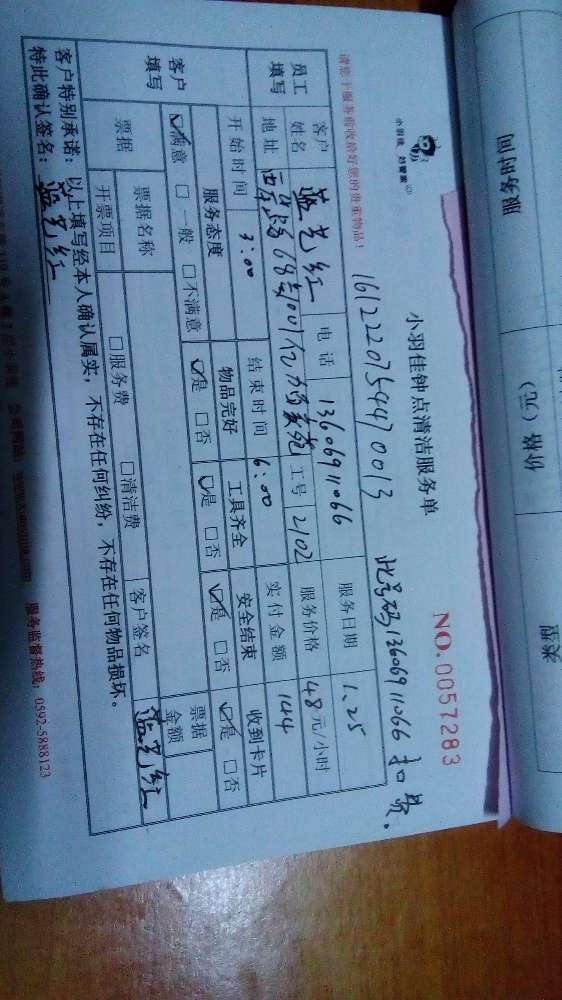 小羽佳 好管家
小羽佳钟点清洁服务单
NO.0057283
161222075447 0013 此号码13606911066扣费.
请您于服务前收拾好您的贵重物品!
员工填写
客户姓名 蓝艺红 电话 13606911066 服务日期 1.25
地址 68号1001 工号 2102 服务价格 48元/小时
开始时间 3:00 结束时间 6:00 实付金额 144
客户填写
服务态度 物品完好 工具齐全 安全结束 收到卡片
☑满意 □一般 □不满意 ☑是 □否 ☑是 □否 ☑是 □否 ☑是 □否
票据 票据名称 客户签名 票据金额
开票项目 □服务费 □清洁费 蓝艺红
客户特别承诺:以上填写经本人确认属实,不存在任何纠纷,不存在任何物品损坏。
特此确认签名: 蓝艺红
服务监督热线:0592-5888123
服务时间
价格(元)
类型